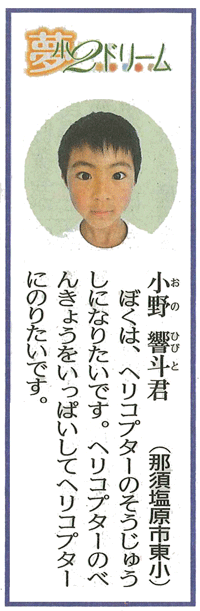 夢小2ドリーム
小野 響斗君
おの ひびと
(那須塩原市東小)
ぼくは、ヘリコプターのそうじゅう
しになりたいです。ヘリコプターのべ
んきょうをいっぱいしてヘリコプター
にのりたいです。